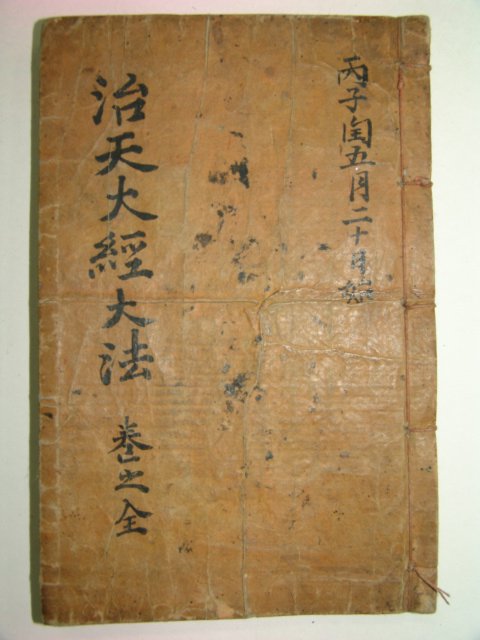 丙子閏五月二十日始
治天大經大法 卷之全